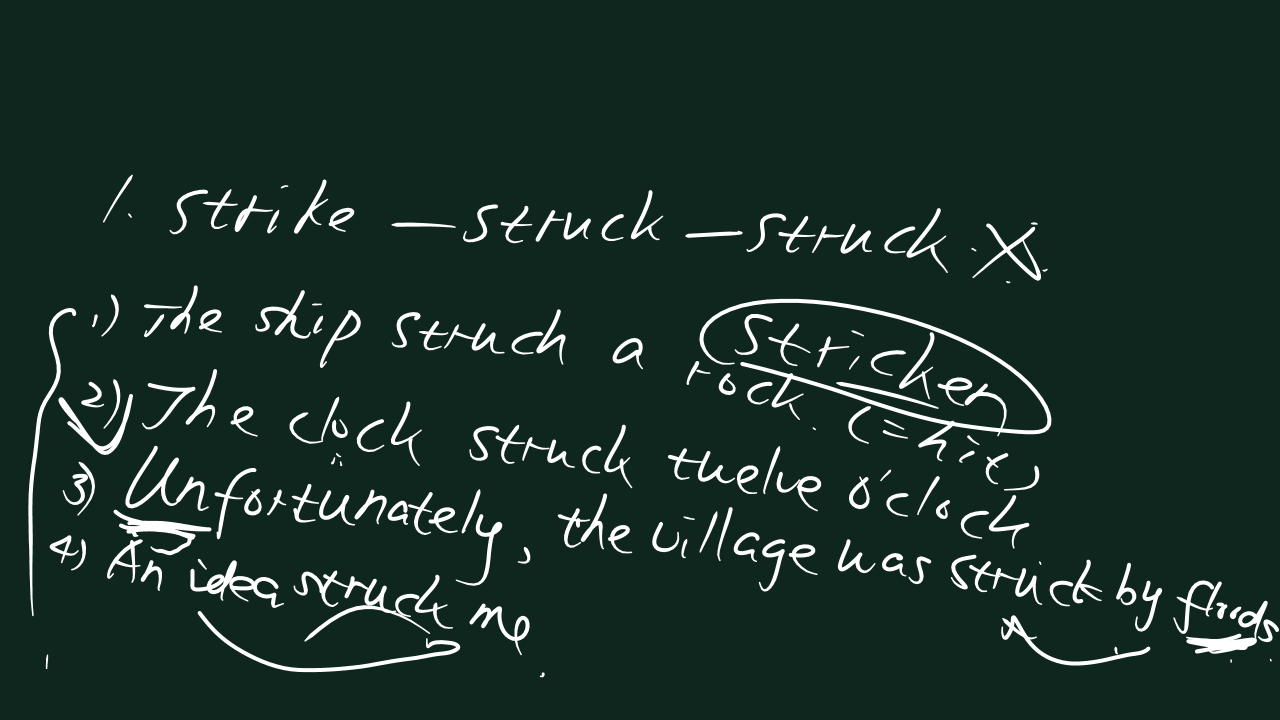 1. strike — struck — struck. X
stricken
1) The ship struck a rock. (=hit)
2) The clock struck twelve o'clock
3) Unfortunately, the village was struck by floods
4) An idea struck me.